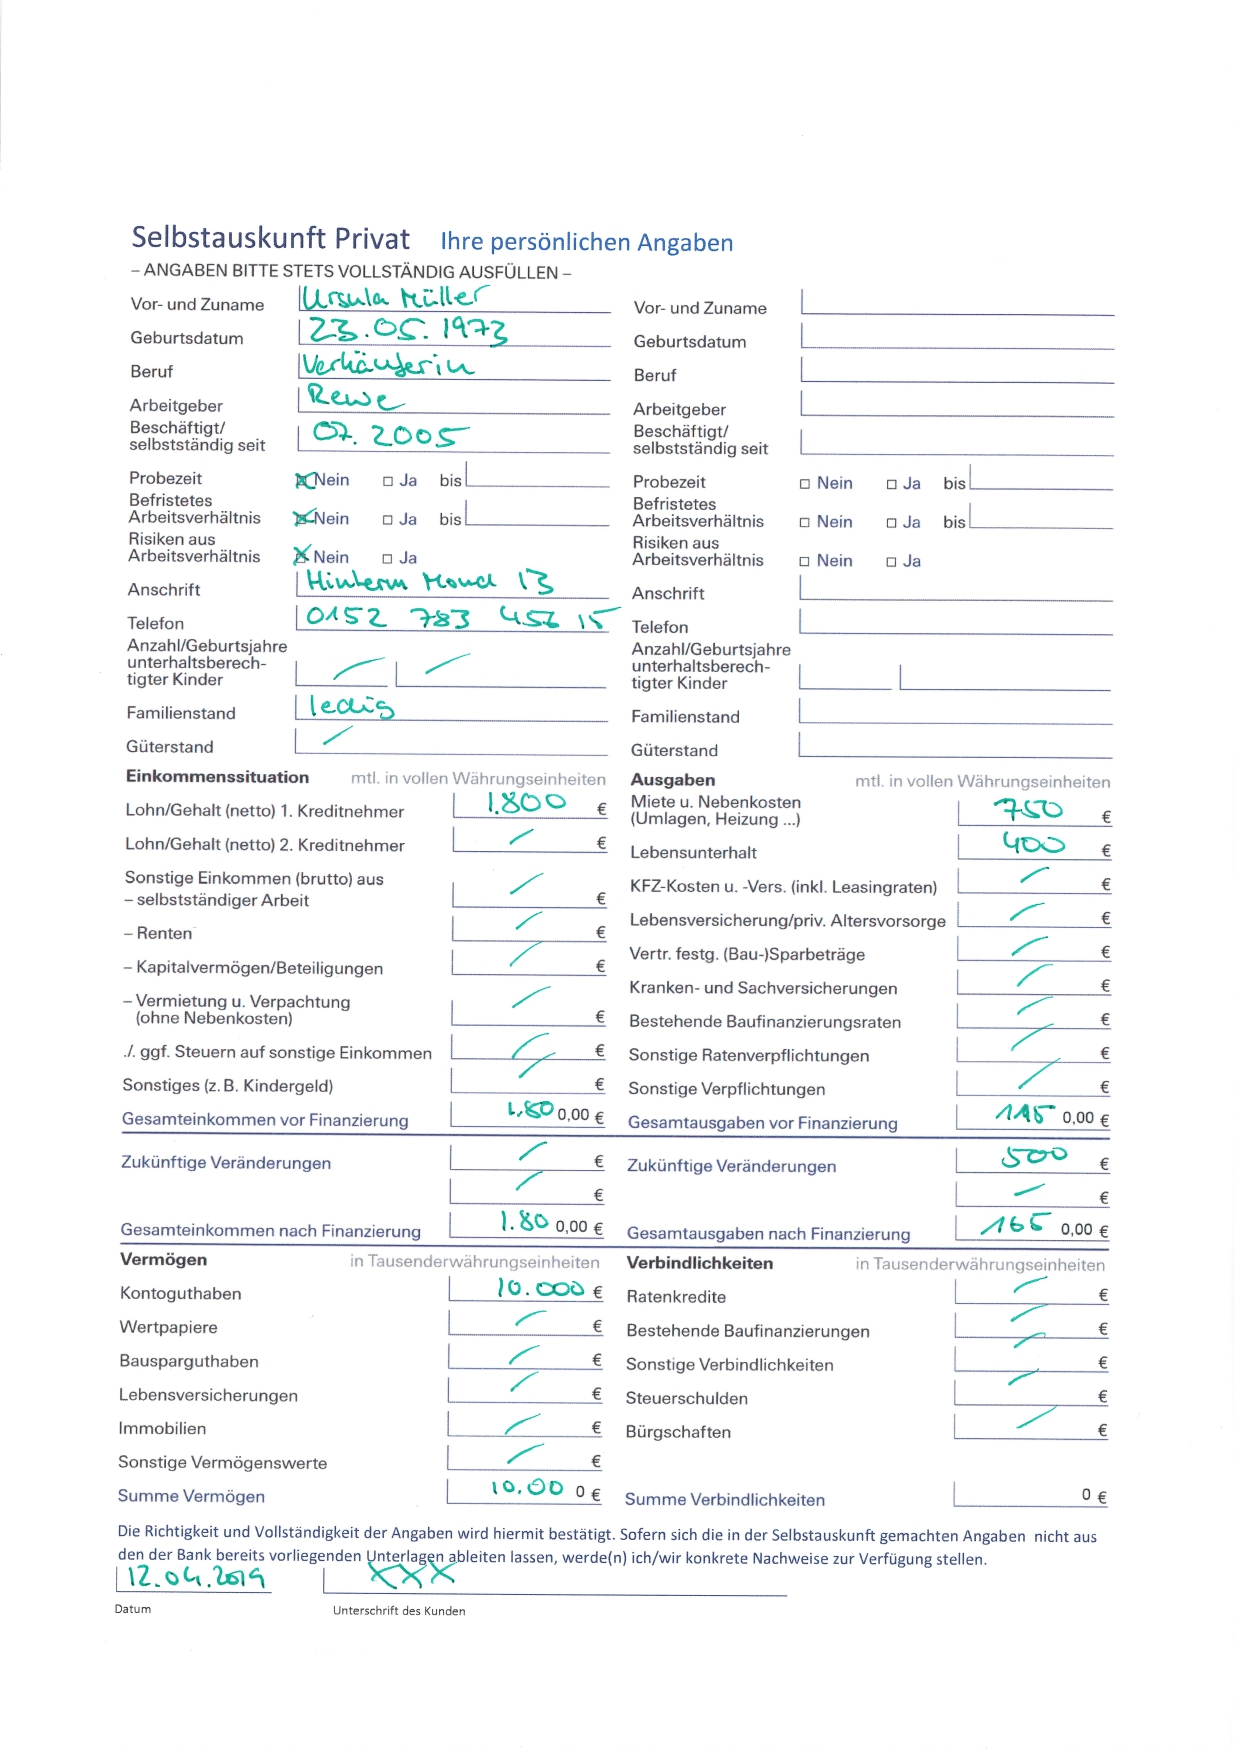 Selbstauskunft Privat Ihre persönlichen Angaben
– ANGABEN BITTE STETS VOLLSTÄNDIG AUSFÜLLEN –
Vor- und Zuname Ursula Müller
Geburtsdatum 23.05.1973
Beruf Verkäuferin
Arbeitgeber Rewe
Beschäftigt/
selbstständig seit 07.2005
Probezeit Nein Ja bis
Befristetes
Arbeitsverhältnis Nein Ja bis
Risiken aus
Arbeitsverhältnis Nein Ja
Anschrift Hinterm Mond 13
Telefon 0152 783 456 15
Anzahl/Geburtsjahre
unterhaltsberech-
tigter Kinder
Familienstand ledig
Güterstand
Vor- und Zuname
Geburtsdatum
Beruf
Arbeitgeber
Beschäftigt/
selbstständig seit
Probezeit Nein Ja bis
Befristetes
Arbeitsverhältnis Nein Ja bis
Risiken aus
Arbeitsverhältnis Nein Ja
Anschrift
Telefon
Anzahl/Geburtsjahre
unterhaltsberech-
tigter Kinder
Familienstand
Güterstand
Einkommenssituation mtl. in vollen Währungseinheiten
Lohn/Gehalt (netto) 1. Kreditnehmer 1.800 €
Lohn/Gehalt (netto) 2. Kreditnehmer €
Sonstige Einkommen (brutto) aus
– selbstständiger Arbeit €
– Renten €
– Kapitalvermögen/Beteiligungen €
– Vermietung u. Verpachtung
(ohne Nebenkosten) €
./. ggf. Steuern auf sonstige Einkommen €
Sonstiges (z. B. Kindergeld) €
Gesamteinkommen vor Finanzierung 1.80 0,00 €
Zukünftige Veränderungen €
€
Gesamteinkommen nach Finanzierung 1.80 0,00 €
Ausgaben mtl. in vollen Währungseinheiten
Miete u. Nebenkosten
(Umlagen, Heizung ...) 750 €
Lebensunterhalt 400 €
KFZ-Kosten u. -Vers. (inkl. Leasingraten) €
Lebensversicherung/priv. Altersvorsorge €
Vertr. festg. (Bau-)Sparbeträge €
Kranken- und Sachversicherungen €
Bestehende Baufinanzierungsraten €
Sonstige Ratenverpflichtungen €
Sonstige Verpflichtungen €
Gesamtausgaben vor Finanzierung 115 0,00 €
Zukünftige Veränderungen 500 €
€
Gesamtausgaben nach Finanzierung 165 0,00 €
Vermögen in Tausenderwährungseinheiten
Kontoguthaben 10.000 €
Wertpapiere €
Bausparguthaben €
Lebensversicherungen €
Immobilien €
Sonstige Vermögenswerte €
Summe Vermögen 10.00 0 €
Verbindlichkeiten in Tausenderwährungseinheiten
Ratenkredite €
Bestehende Baufinanzierungen €
Sonstige Verbindlichkeiten €
Steuerschulden €
Bürgschaften €
Summe Verbindlichkeiten 0 €
Die Richtigkeit und Vollständigkeit der Angaben wird hiermit bestätigt. Sofern sich die in der Selbstauskunft gemachten Angaben nicht aus
den der Bank bereits vorliegenden Unterlagen ableiten lassen, werde(n) ich/wir konkrete Nachweise zur Verfügung stellen.
12.04.2019 XXX
Datum Unterschrift des Kunden